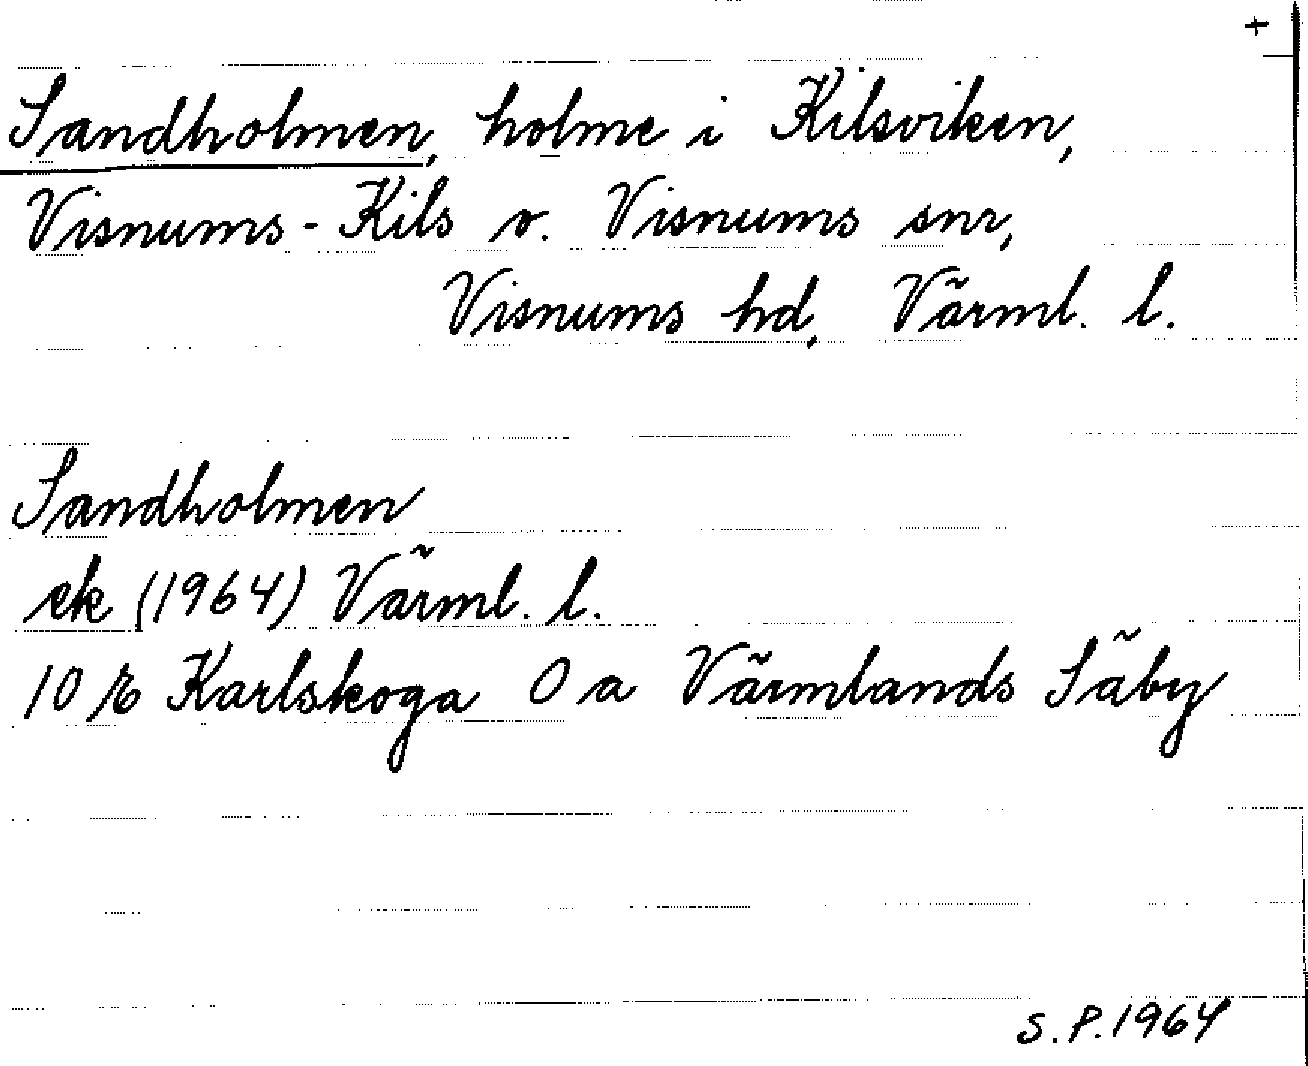 +
Sandholmen, holme i Kilsviken,
Visnums-Kils o. Visnums snr,
Visnums hd, Värml. l.
Sandholmen
ek (1964) Värml. l.
10 E Karlskoga 0 a Värmlands Säby
S.P. 1964